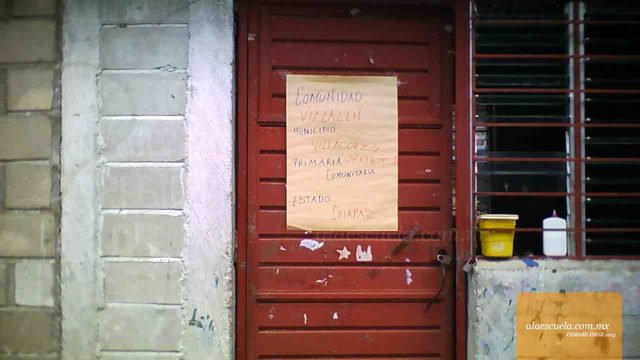 COMUNIDAD
VILLALEN
MUNICIPIO
VILLACORZO
PRIMARIA
COMUNITARIA
ESTADO
CHIAPAS
alaescuela.com.mx
CEMABE-INEGI 2013